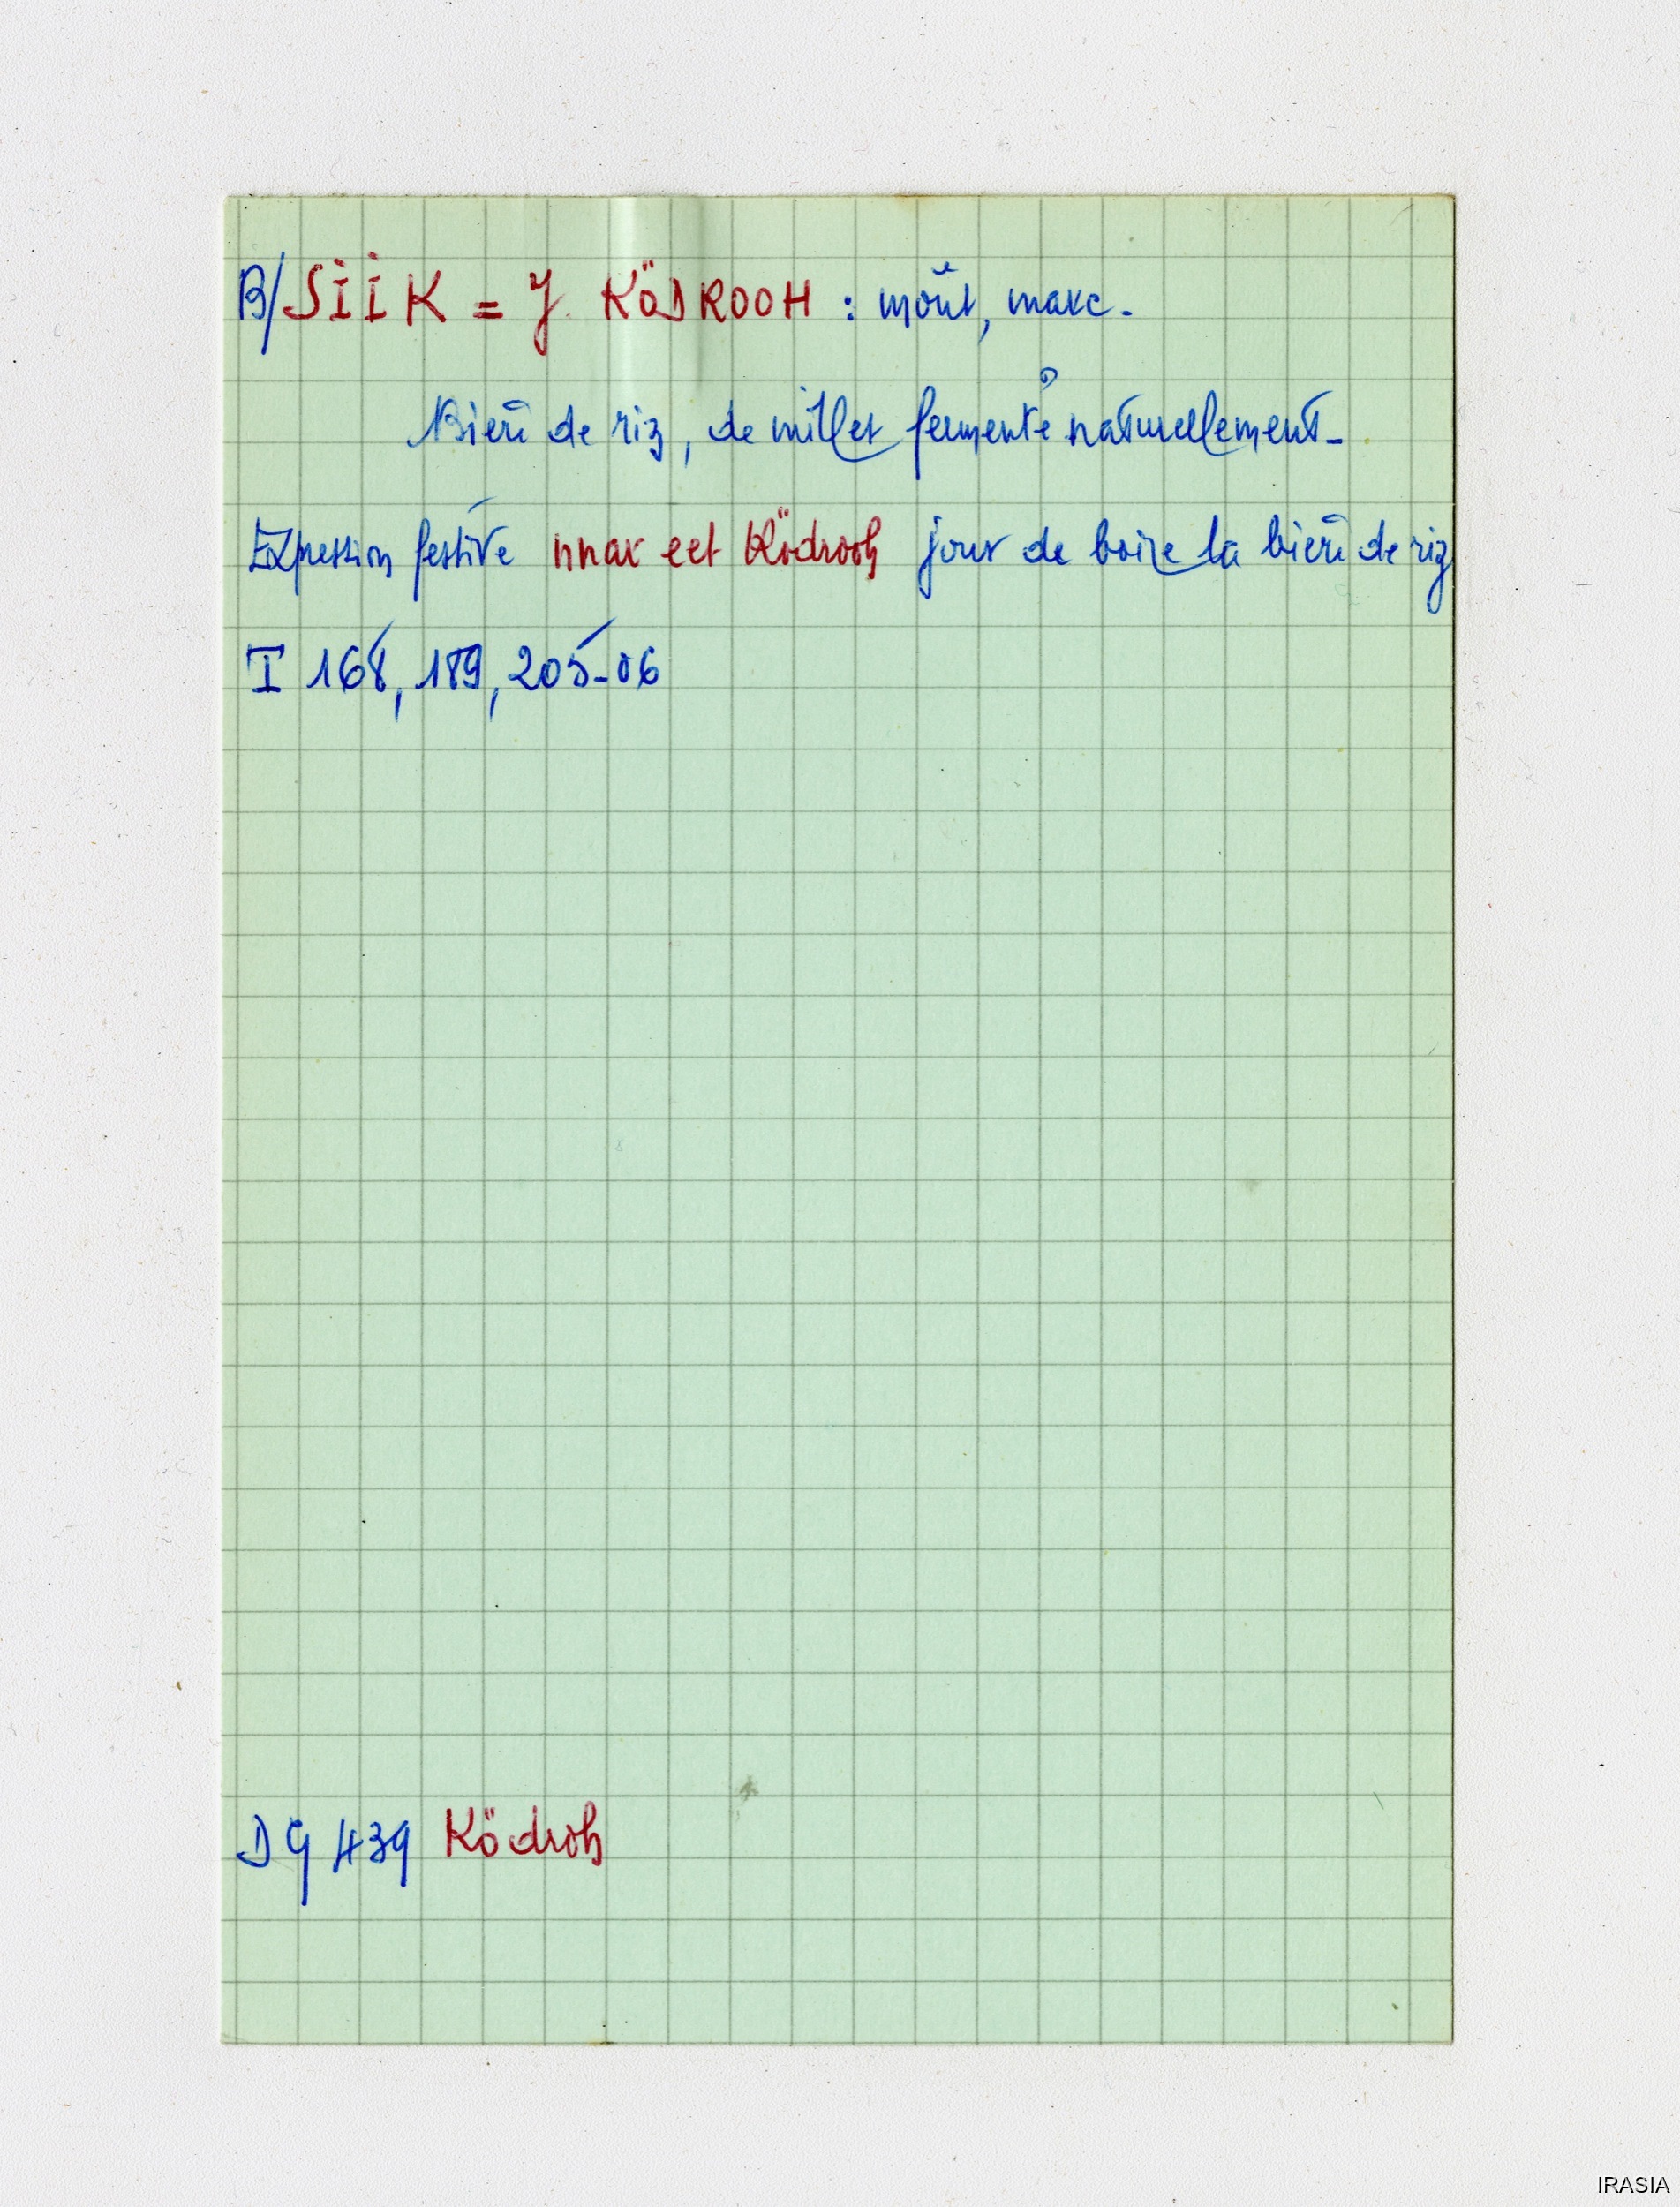 B/ SIIK = J. KÖDROOH : moût, marc.
Bière de riz, de millet fermenté naturellement -
Expression festive nnar eet Ködrooh jour de boire la bière de riz
I 168, 189, 205-06
DG 439 Ködroh
IRASIA